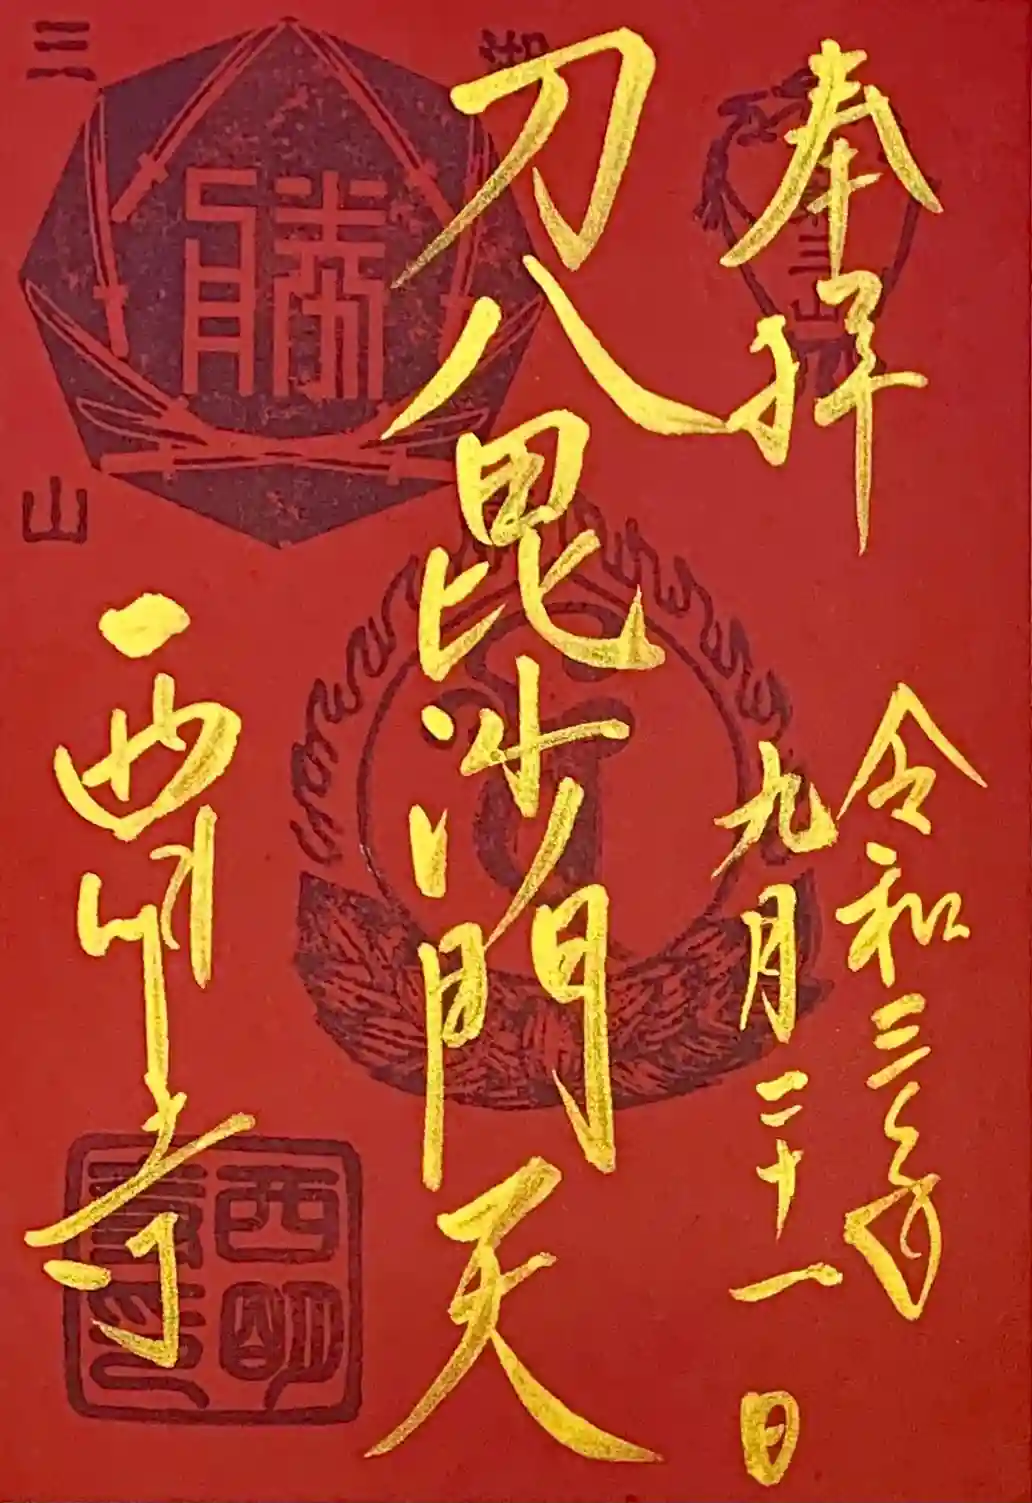 奉拝
令和三年
九月二十一日
刀八毘沙門天
西明寺
勝
三
山
西明
寺印